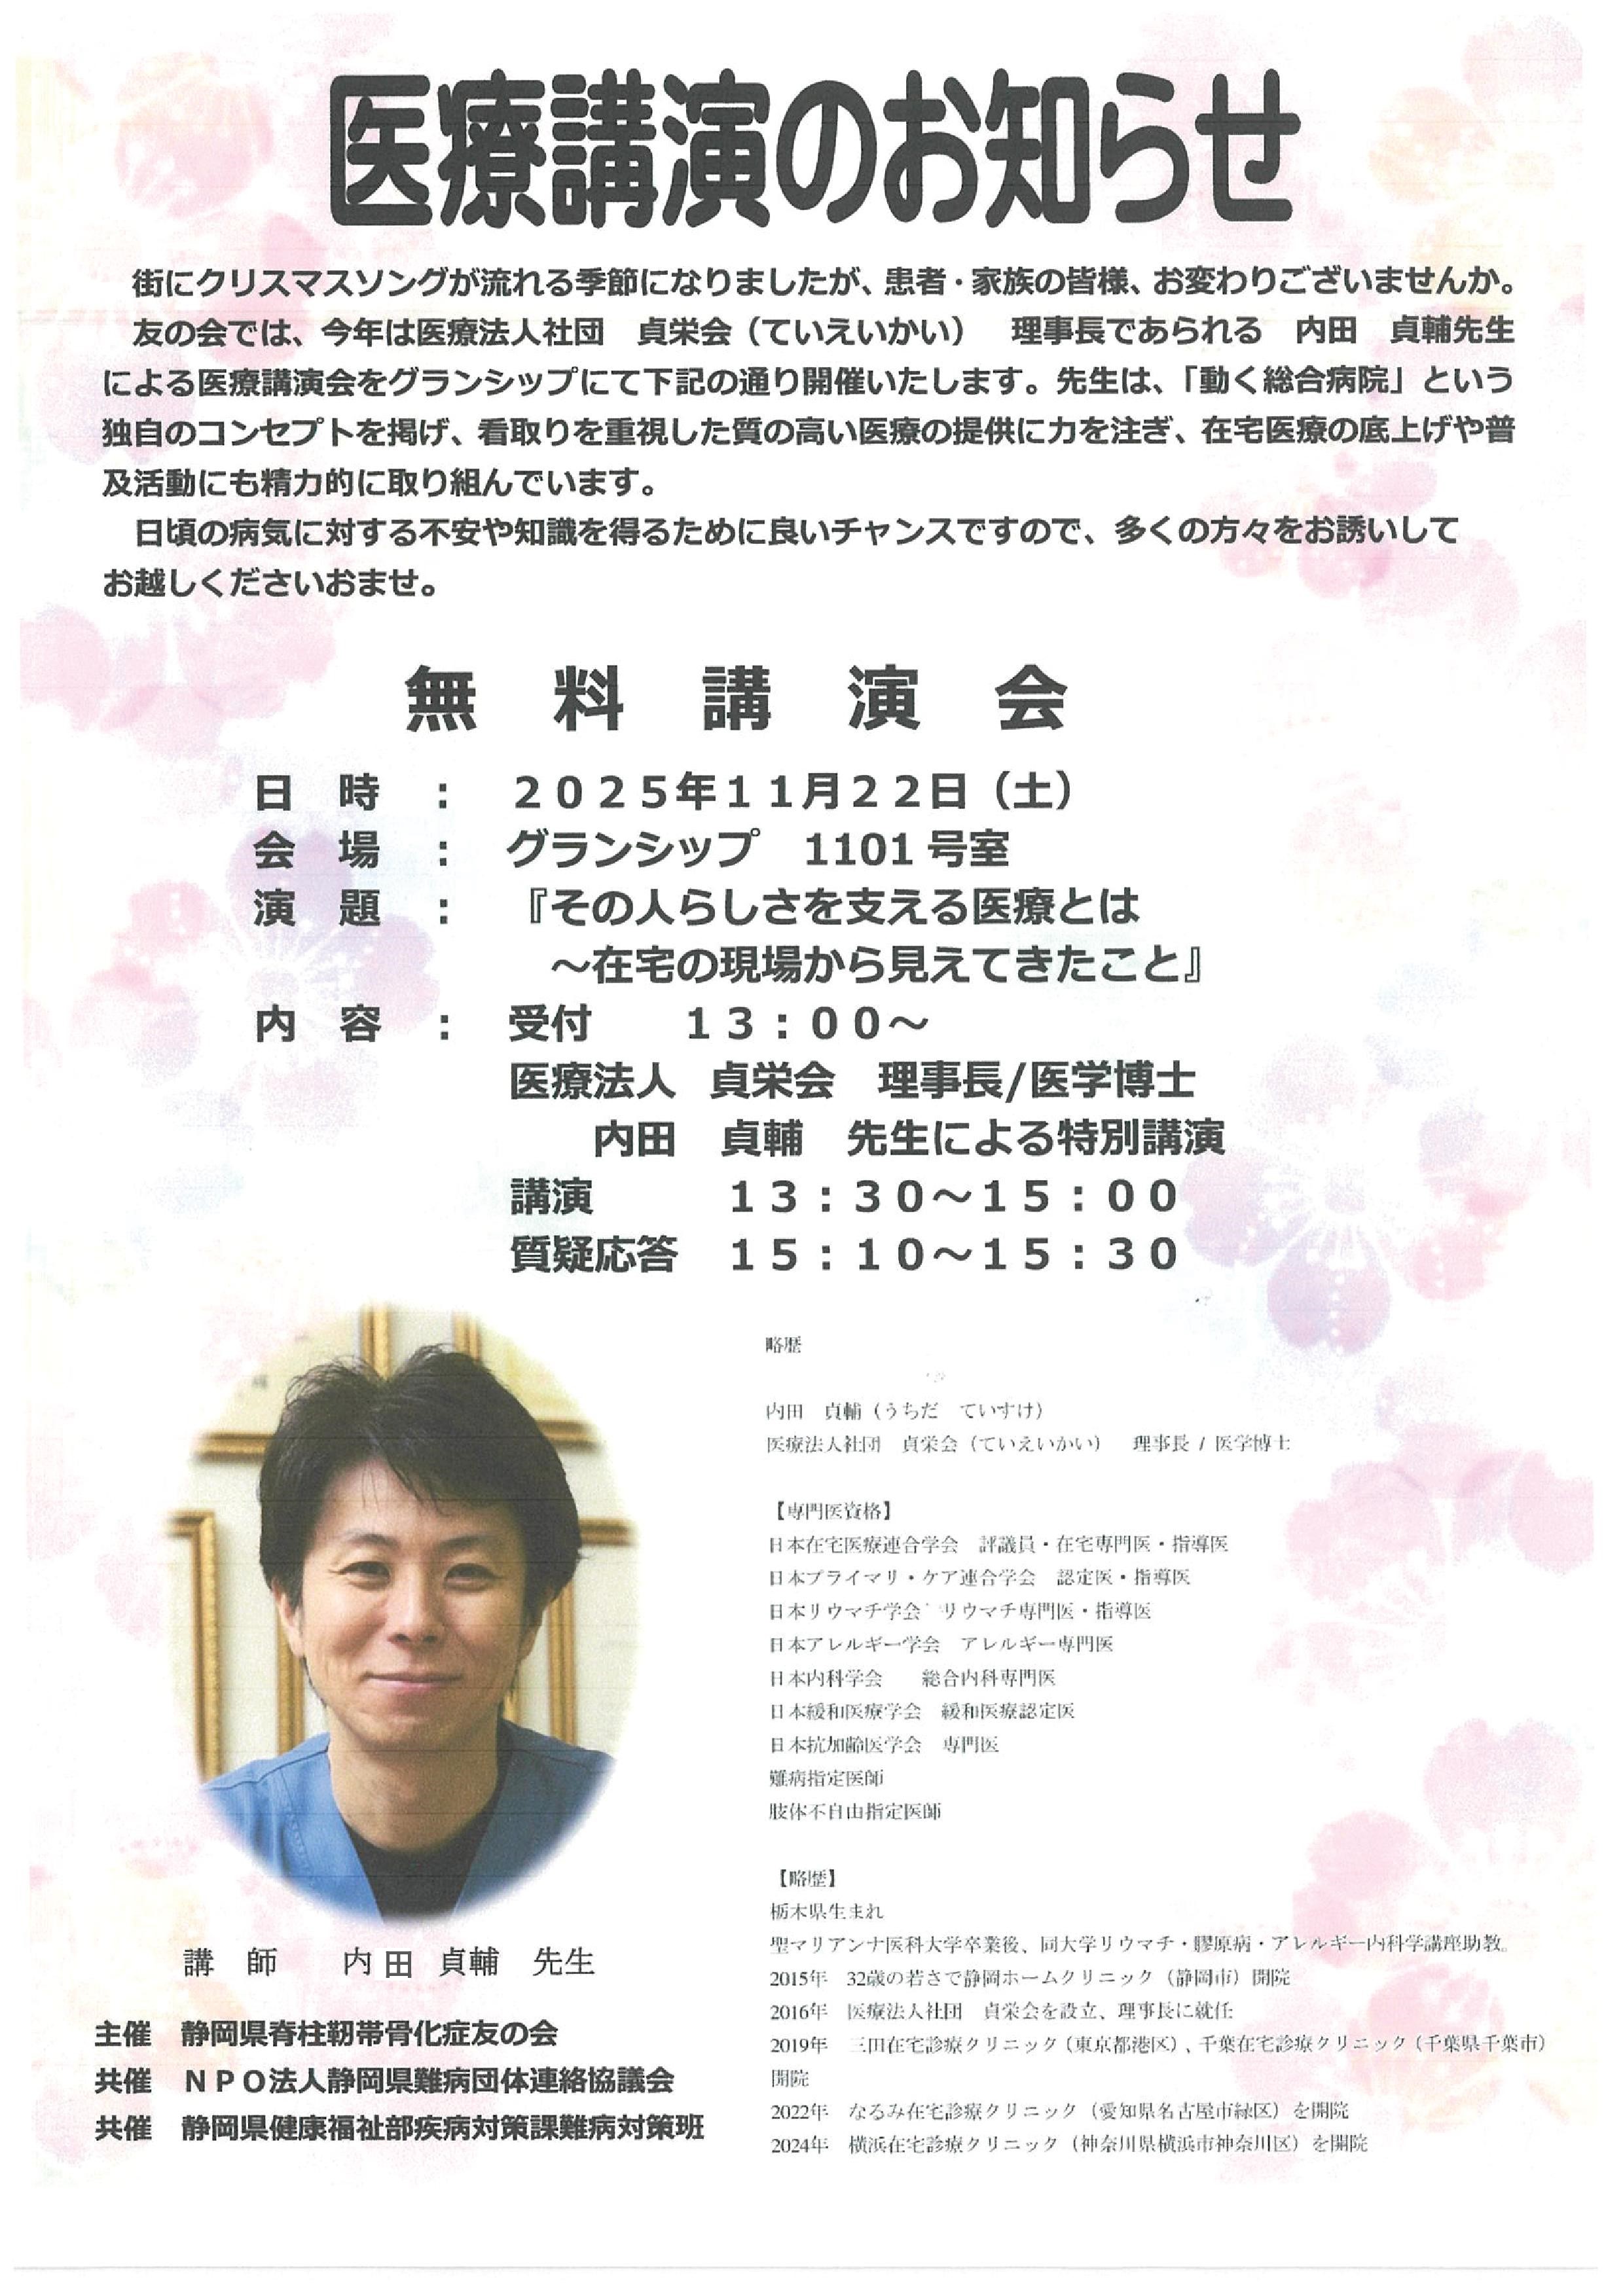 医療講演のお知らせ
街にクリスマスソングが流れる季節になりましたが、患者・家族の皆様、お変わりございませんか。
友の会では、今年は医療法人社団　貞栄会（ていえいかい）　理事長であられる　内田　貞輔先生
による医療講演会をグランシップにて下記の通り開催いたします。先生は、「動く総合病院」という
独自のコンセプトを掲げ、看取りを重視した質の高い医療の提供に力を注ぎ、在宅医療の底上げや普
及活動にも精力的に取り組んでいます。
日頃の病気に対する不安や知識を得るために良いチャンスですので、多くの方々をお誘いして
お越しくださいおませ。
無　料　講　演　会
日　時　：　２０２５年１１月２２日（土）
会　場　：　グランシップ　1101 号室
演　題　：　『その人らしさを支える医療とは
～在宅の現場から見えてきたこと』
内　容　：　受付　　１３：００～
医療法人　貞栄会　理事長/医学博士
内田　貞輔　先生による特別講演
講演　　　１３：３０～１５：００
質疑応答　１５：１０～１５：３０
略歴
内田　貞輔（うちだ　ていすけ）
医療法人社団　貞栄会（ていえいかい）　理事長 / 医学博士
【専門医資格】
日本在宅医療連合学会　評議員・在宅専門医・指導医
日本プライマリ・ケア連合学会　認定医・指導医
日本リウマチ学会　リウマチ専門医・指導医
日本アレルギー学会　アレルギー専門医
日本内科学会　　総合内科専門医
日本緩和医療学会　緩和医療認定医
日本抗加齢医学会　専門医
難病指定医師
肢体不自由指定医師
【略歴】
栃木県生まれ
聖マリアンナ医科大学卒業後、同大学リウマチ・膠原病・アレルギー内科学講座助教。
2015年　32歳の若さで静岡ホームクリニック（静岡市）開院
2016年　医療法人社団　貞栄会を設立、理事長に就任
2019年　三田在宅診療クリニック（東京都港区）、千葉在宅診療クリニック（千葉県千葉市）
開院
2022年　なるみ在宅診療クリニック（愛知県名古屋市緑区）を開院
2024年　横浜在宅診療クリニック（神奈川県横浜市神奈川区）を開院
講　師　　内田　貞輔　先生
主催　静岡県脊柱靭帯骨化症友の会
共催　ＮＰＯ法人静岡県難病団体連絡協議会
共催　静岡県健康福祉部疾病対策課難病対策班